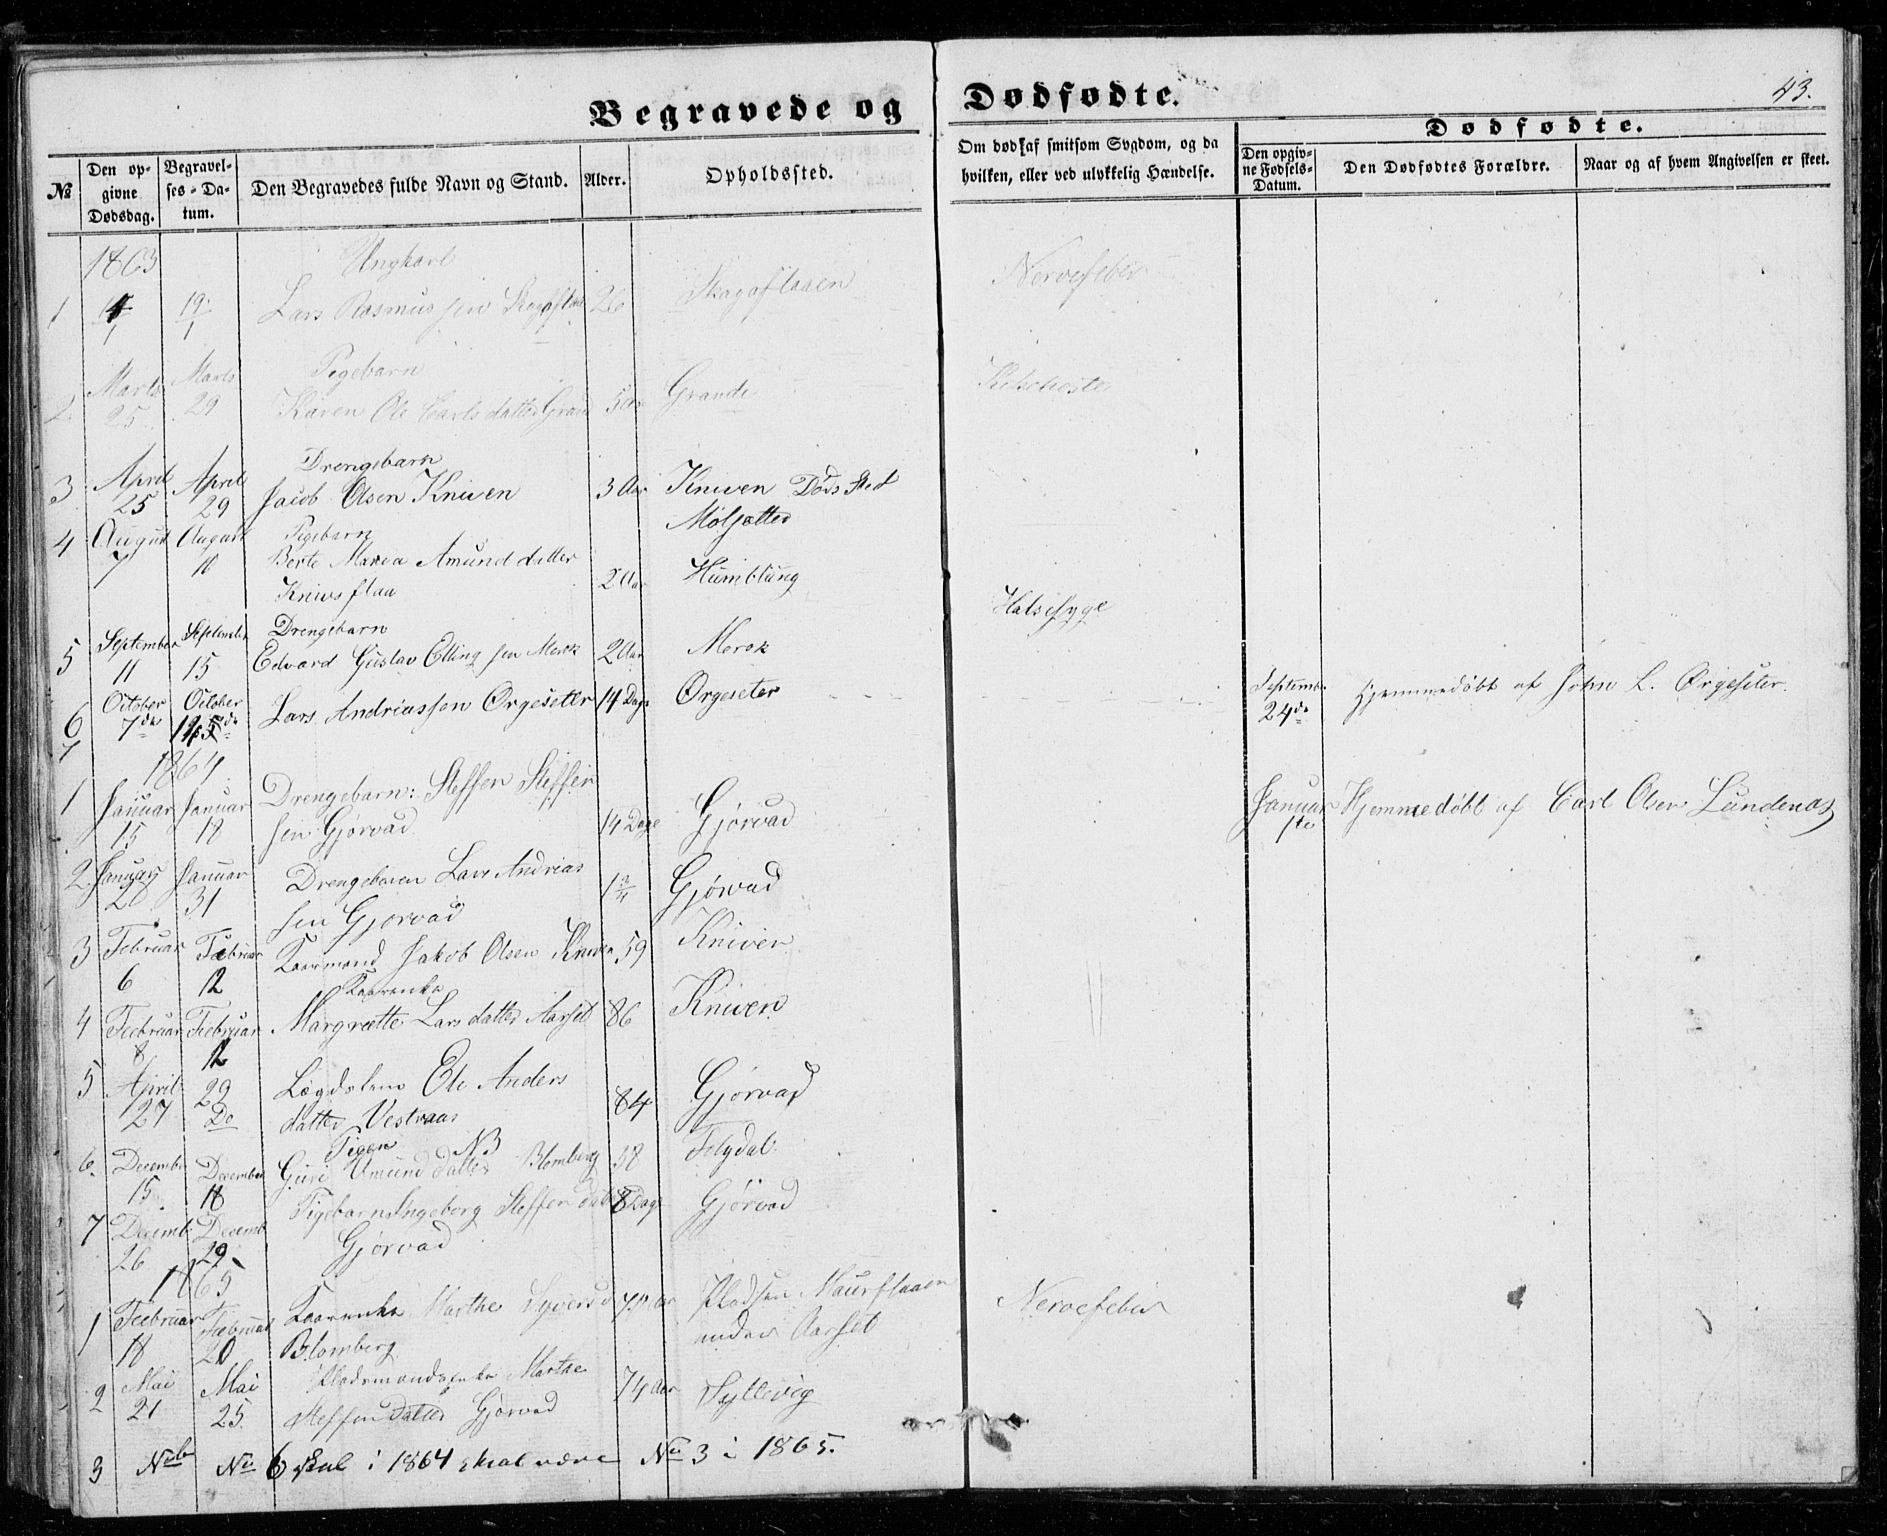 Begravede og Dødfødte.
43.
Dødfødte.
№
Den opgivne Dødsdag.
Begravelses-Datum.
Den Begravedes fulde Navn og Stand.
Alder.
Opholdssted.
Om død af smitsom Sygdom, og da hvilken, eller ved ulykkelig Hændelse.
Den opgivne Fødsels-Datum.
Den Dødfødtes Forældre.
Naar og af hvem Angivelsen er skeet.
1863
Ungkarl
1 19/1 Lars Rasmussen 26 Skagaflaaen Nervefeber
Pigebarn
2. Marts 25 Marts 29 Karen Ole Carlsdatter Grande
Drengebarn
3 April 25 April 29 Jacob Olsen Kniven 3 Aar Kniven Døds Sted
Pigebarn
4 August 7 August Berte Amunddatter
Knivsflaa 2 Aar Humblung
Halsesyge
Drengebarn
5 September 11 September 15 Edvard Gustav Ellingsen Merok 2 Aar Merok
6 October 7de October Lars Andriassen Ørgeseter 14 Dage Ørgeseter Septemb. 24de Hjemmedøbt af John L. Ørgeseter.
7
1864
1 Januar 15 Januar 18 Drengebarn: Steffen Steffen
sen Gjørvad 14 Dage Gjørvad Januar 1ste Hjemmedøbt af Carl Olsen Lundenæs
2 Januar Januar 31 Drengebarn Lars Andrias
sen Gjørvad 1 3/4 Gjørvad
3 Februar 6 Februar 12 Kaarmand Jakob Olsen Kniven 59 Kniven
Kaarenke
4 Februar 8 Februar 12 Margrette Larsdatter Aarset 86 Kniven
5 April 27 29 Do Lægdslem Eli Anders
datter Vestraas 84 Gjørvad
Pigen NB
6. Decembe 15 December 18 Guri Amunddatter Blomberg 38
7 Decemb 26 Decemb 29 Pigebarn Ingeborg Steffendat 8 Dage Gjørvad
Gjørvad
1865
1 Februar 18 Februar 20 Kaarenke Marthe Syversd Pladsen Maurflaaen
Blomberg under Aarset Nervefeber
2 Mai 21 Mai 25. Pladsmandsenke Marthe
Steffendatter Gjørvad 74 Aar Syltevig
3 No 6 i 1864 skal være No 3 i 1865.